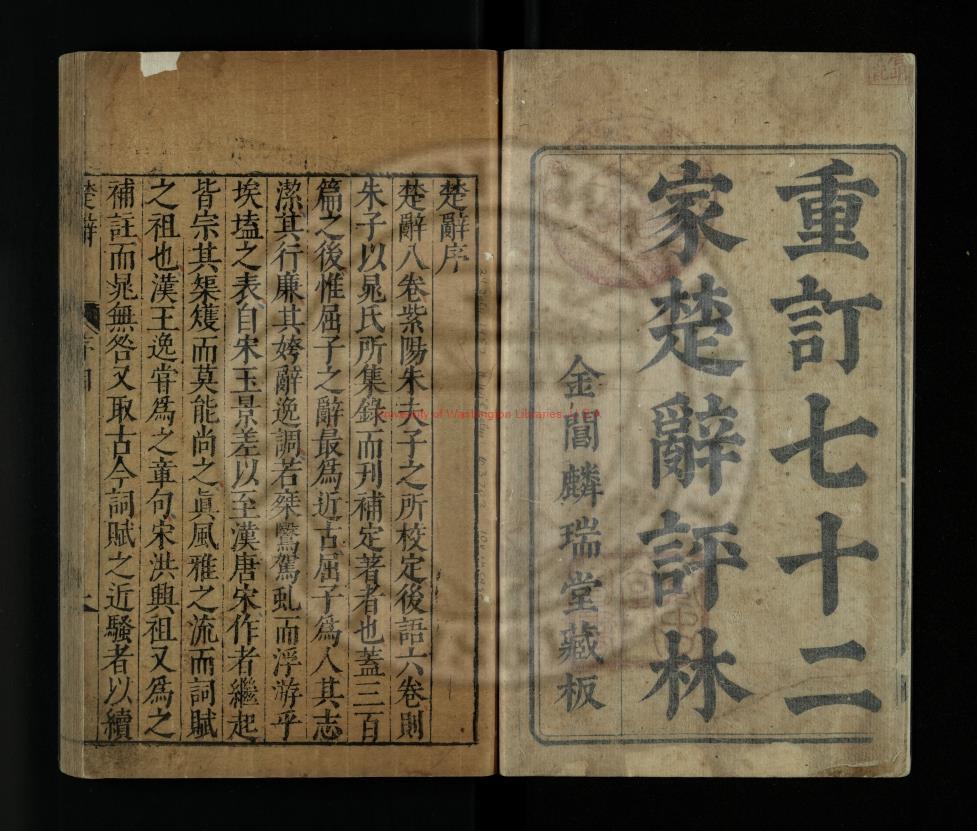 重訂七十二
家楚辭評林
金閶麟瑞堂藏板
楚辭序
楚辭八卷紫陽朱夫子之所校定後語六卷則
朱子以晁氏所集錄而刊補定著者也蓋三百
篇之後惟屈子之辭最為近古屈子為人其志
潔其行廉其姱辭逸調若乘鷖駕虬而浮游乎
埃壒之表自宋玉景差以至漢唐宋作者繼起
皆宗其榘矱而莫能尚之眞風雅之流而詞賦
之祖也漢王逸甞為之章句宋洪興祖又為之
補註而晁無咎又取古今詞賦之近騷者以續
楚辭
University of Washington Libraries, U.S.A.